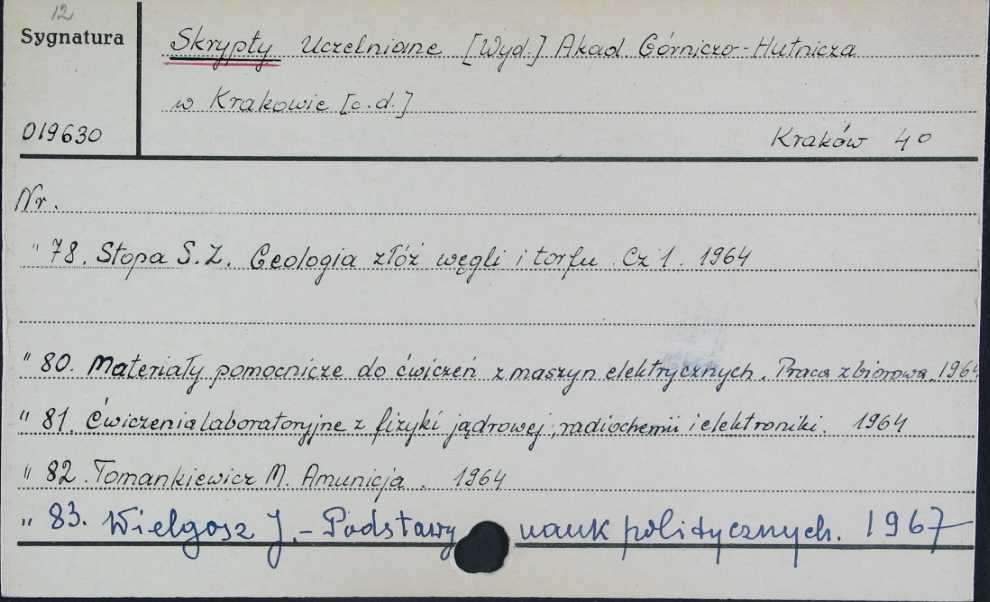 12
Sygnatura
Skrypty Uczelniane [Wyd.] Akad. Górniczo-Hutnicza
w Krakowie [c.d.]
019630
Kraków 4°
Nr.
" 78. Stopa S.Z. Geologia złóż węgli i torfu. Cz 1. 1964
" 80. Materiały pomocnicze do ćwiczeń z maszyn elektrycznych. Praca zbiorowa. 1964
" 81. Ćwiczenia laboratoryjne z fizyki jądrowej, radiochemii i elektroniki. 1964
" 82. Tomankiewicz M. Amunicja. 1964
" 83. Wielgosz J. - Podstawy nauk politycznych. 1967